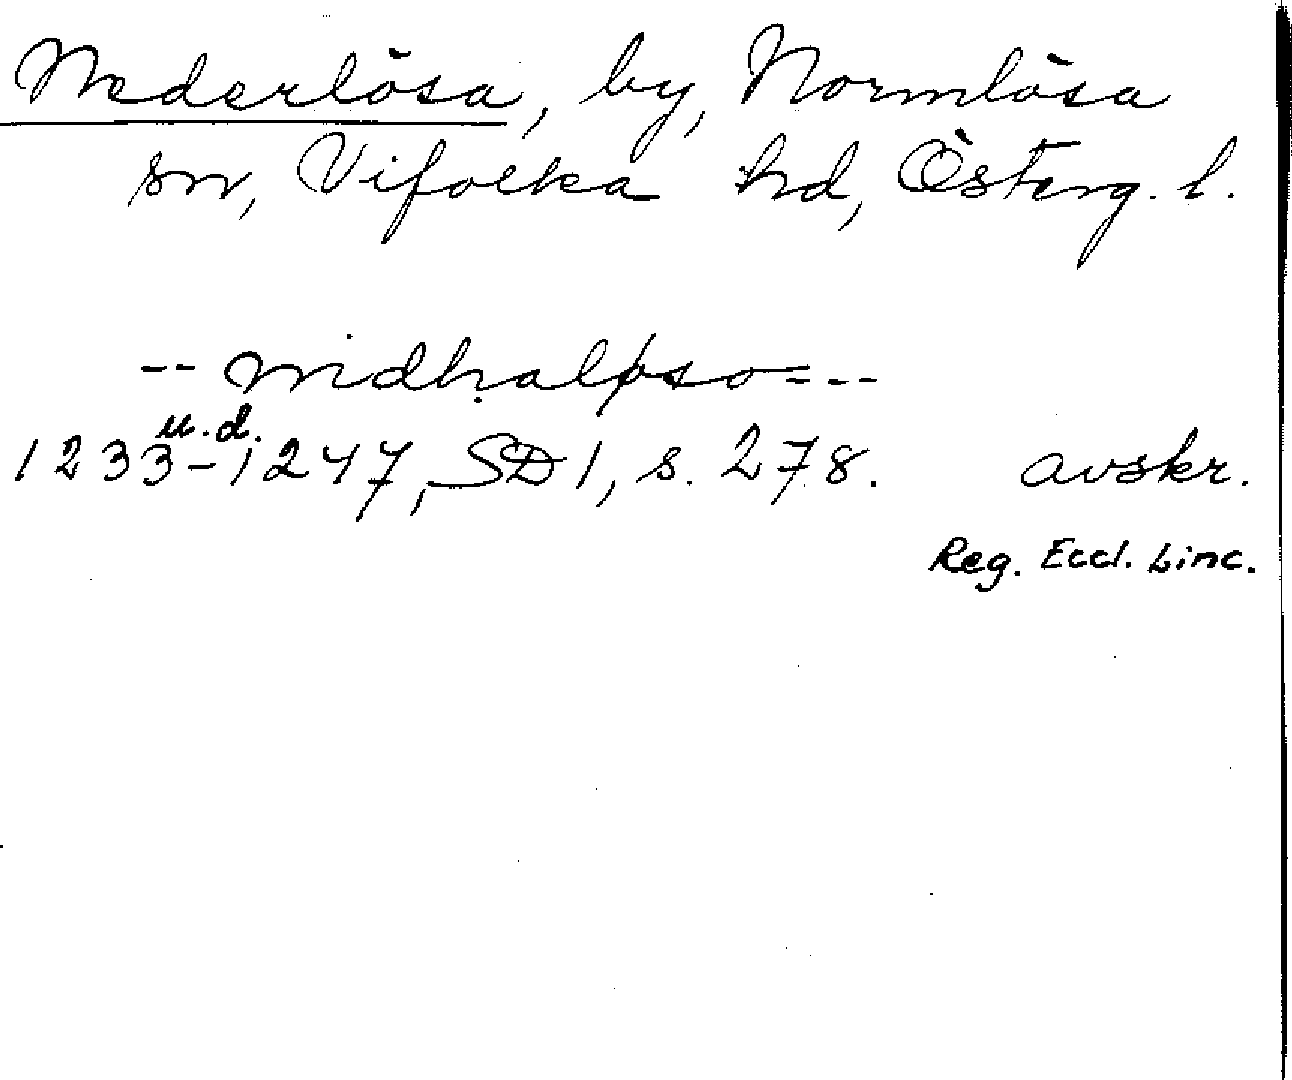 Nederlösa, by, Normlösa
sn, Vifolka hd, Österg. l.
-- nidhalpso=--
u. d.
1233-1247, SD 1, s. 278. avskr.
Reg. Eccl. Linc.